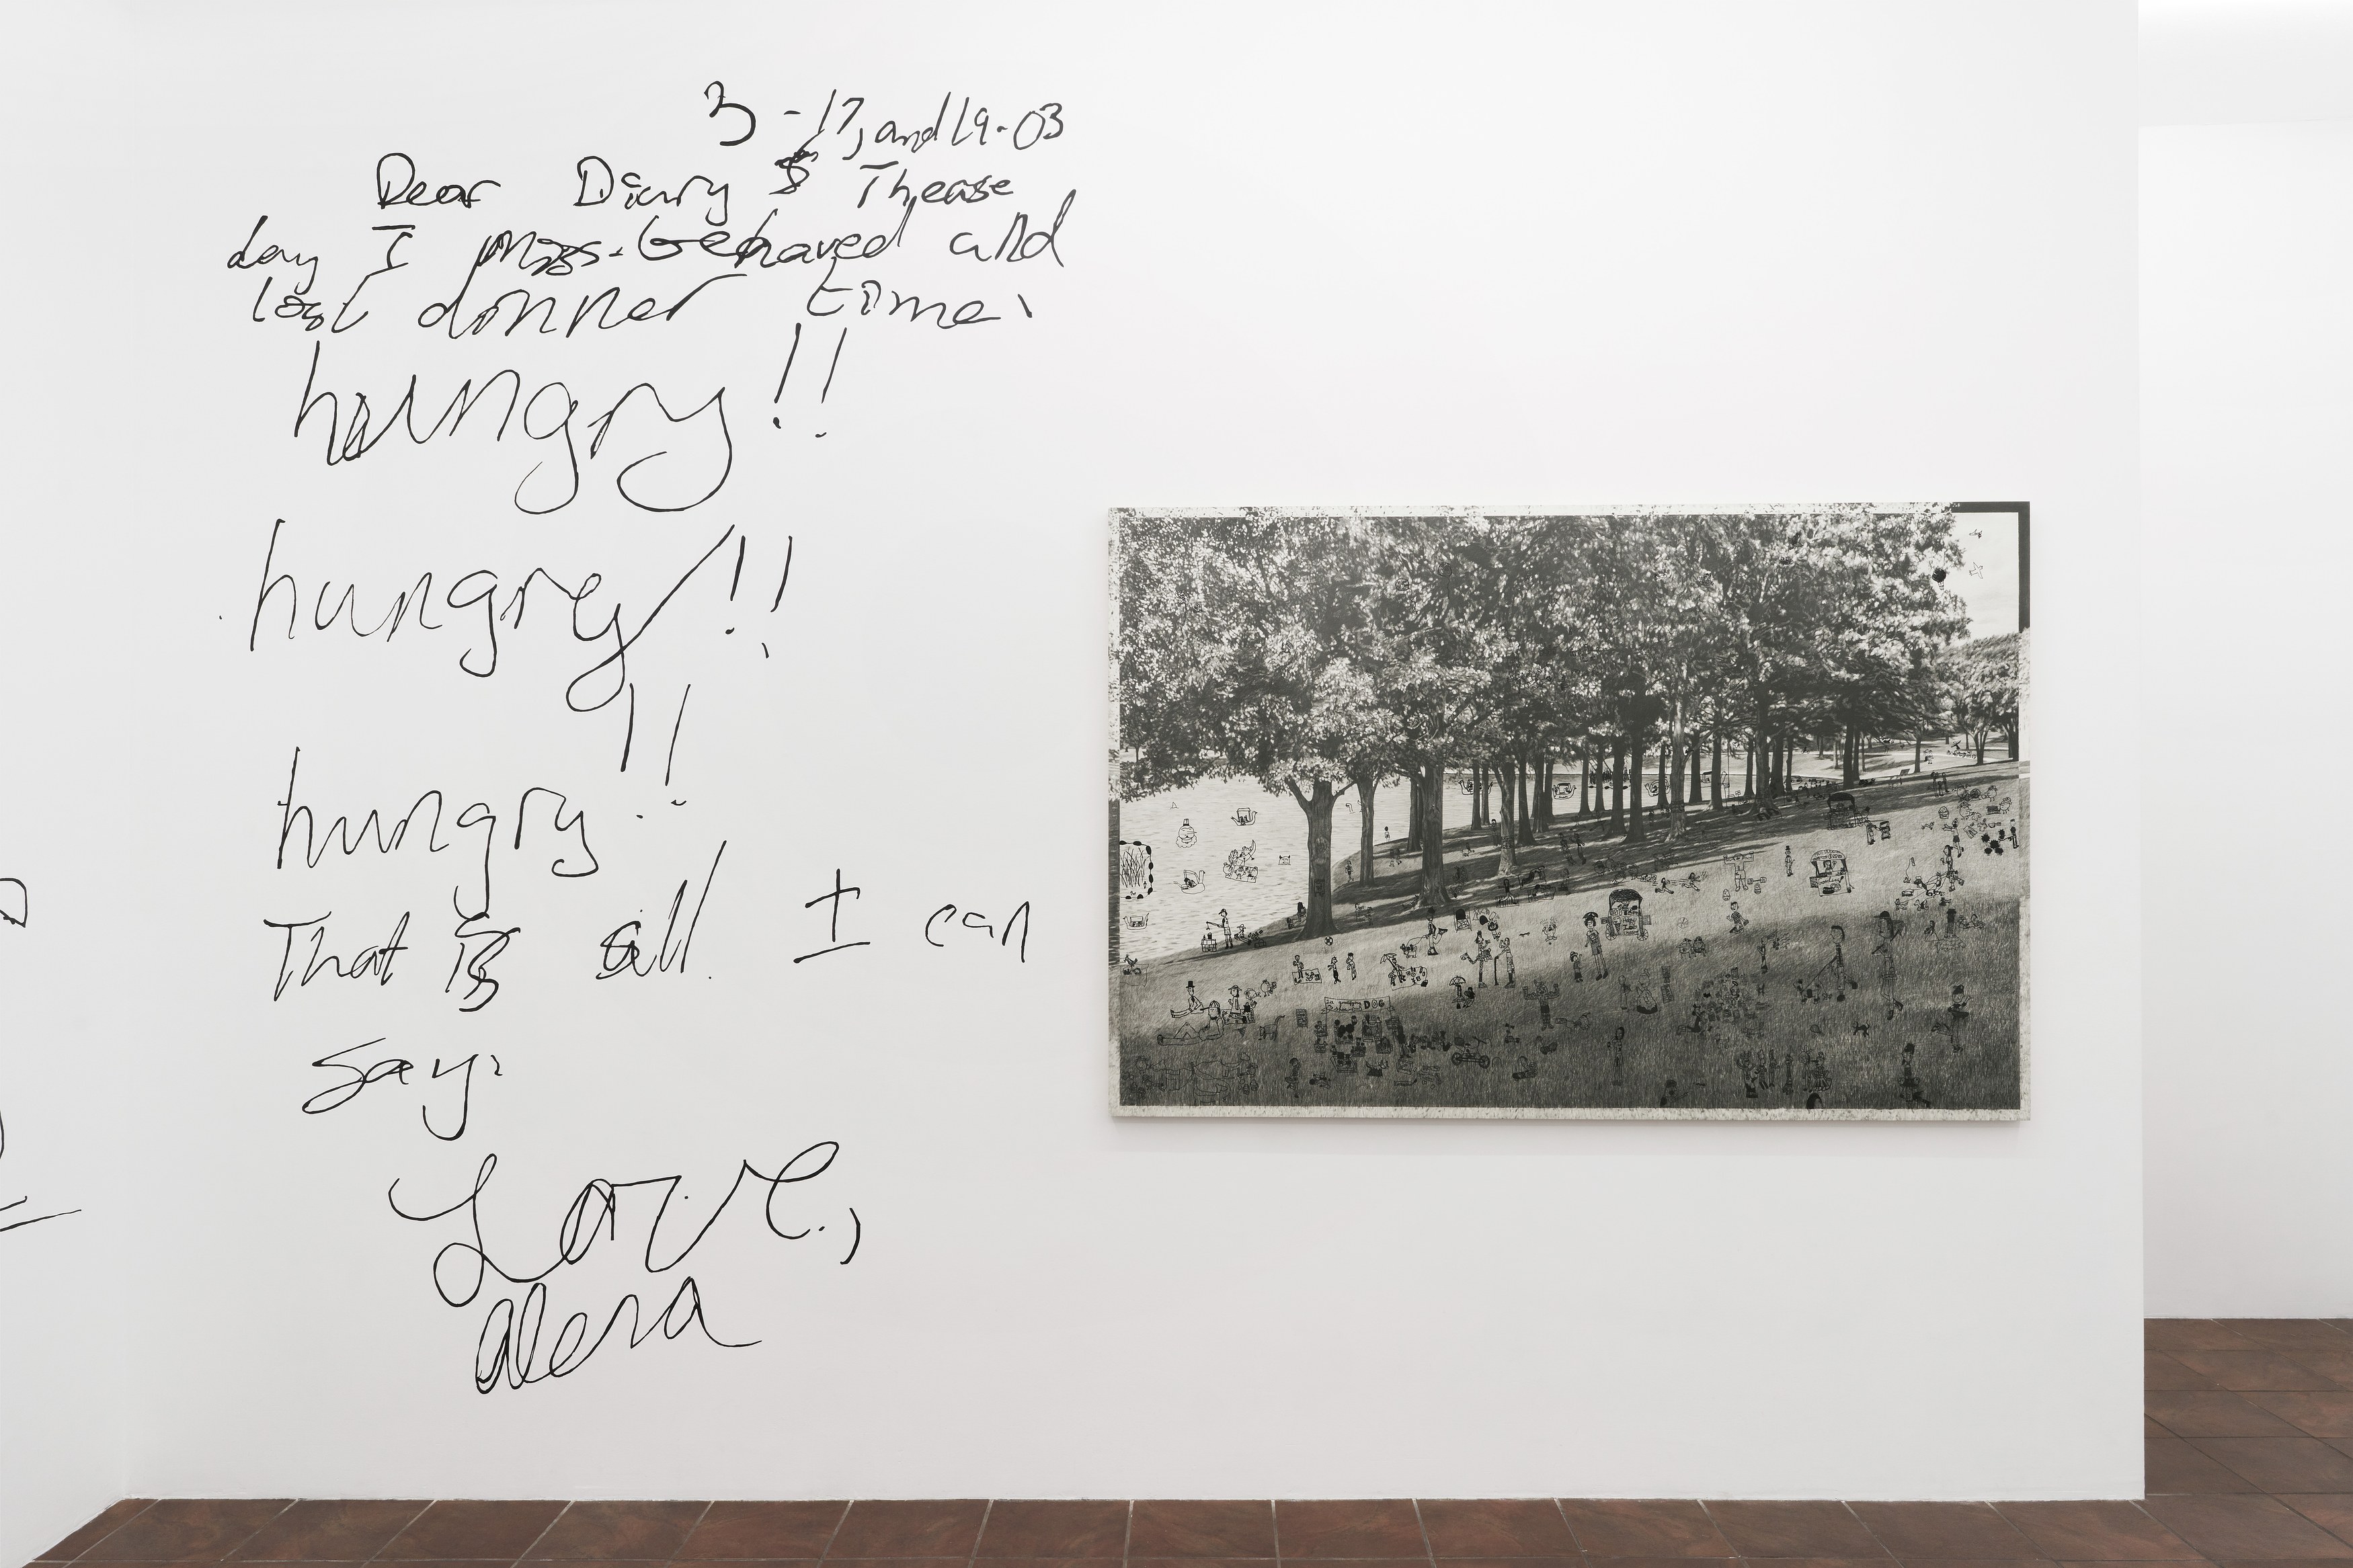 3-17, and 19-03
Dear Diary Thease
day I miss-behaved and
lost dinner time.
hungry!!
hungry!!
hungry!!
That is all I can
say.
Love,
alexa
DOG